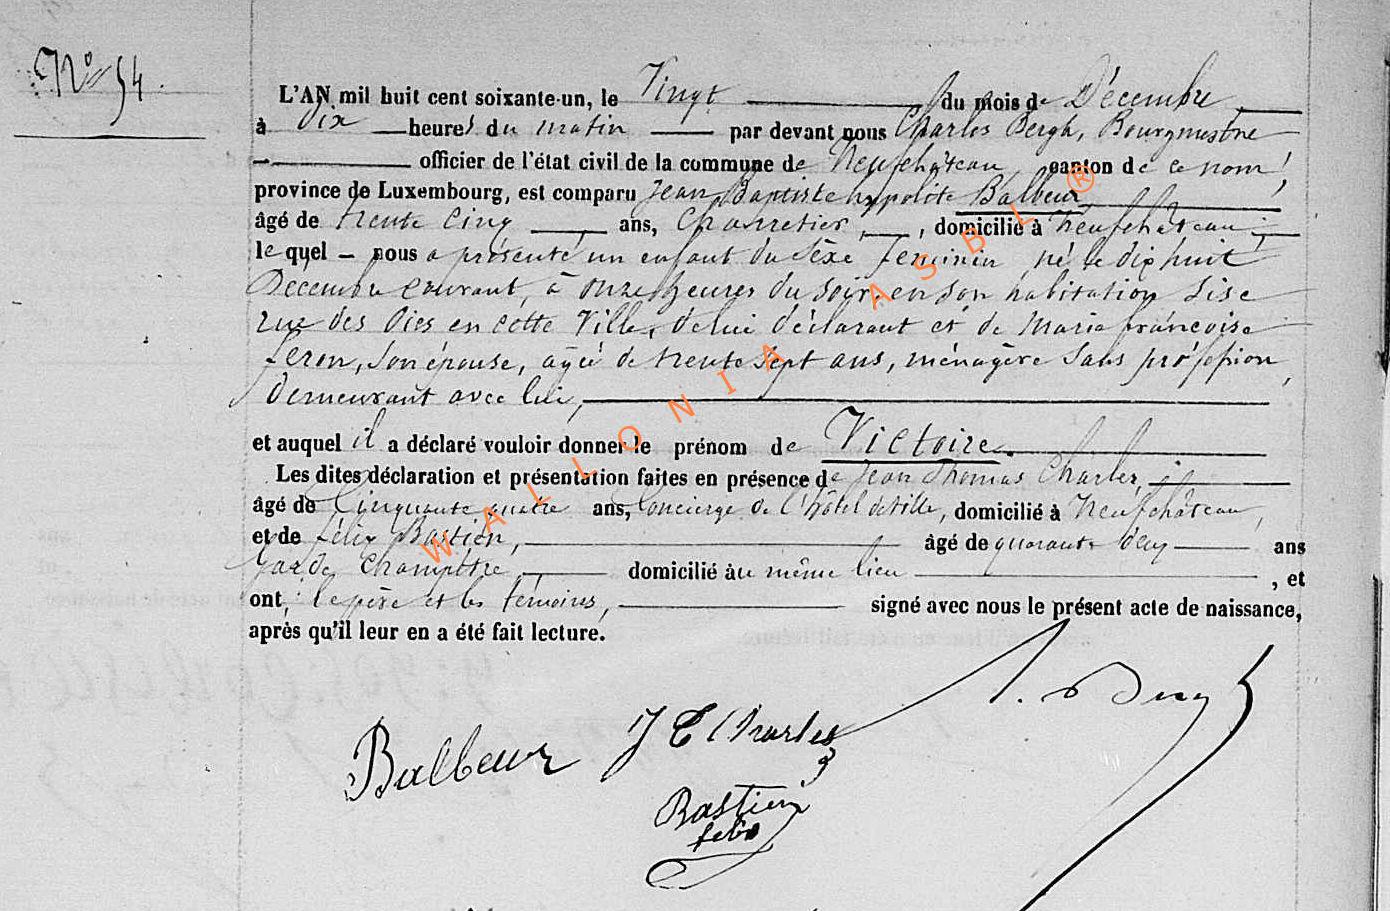 N° 54.
L'AN mil huit cent soixante-un, le Vingt du mois de Décembre,
à dix heures du matin par devant nous Charles Bergh, Bourgmestre
officier de l'état civil de la commune de Neufchâteau, canton de ce nom,
province de Luxembourg, est comparu Jean Baptiste hyppolite Balbeur
âgé de trente cinq ans, Charretier, domicilié à Neufchâteau;
le quel nous a présenté un enfant du Séxe féminin, né le dix huit
Décembre courant, à onze heures du soir, en son habitation sise
rue des Oies en cette Ville, de lui déclarant et de Marie françoise
feron, son épouse, agée de trente sept ans, ménagère sans profession,
demeurant avec lui,
et auquel il a déclaré vouloir donner le prénom de Victoire.
Les dites déclaration et présentation faites en présence de Jean Thomas Charles,
âgé de Cinquante quatre ans, Concierge de l'hôtel de Ville, domicilié à Neufchâteau,
et de félix Bastien, âgé de quarante deux ans
Garde Champêtre, domicilié au même lieu, et
ont, le père et les témoins, signé avec nous le présent acte de naissance,
après qu'il leur en a été fait lecture.
Balbeur J T Charles Bergh
Bastien
felix
WALLONIA ASBL ®